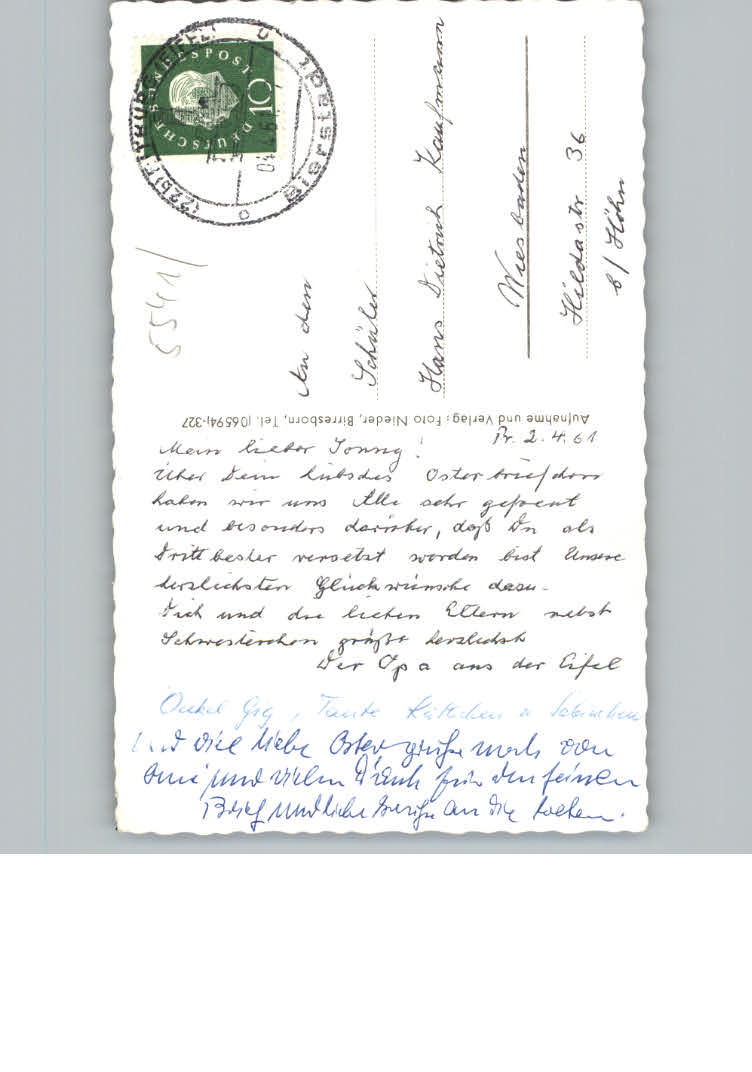 DEUTSCHE BUNDESPOST
10
(22b)
(EIFEL)
Bierstadt
04.
61
5541/
An den
Schüler
Hans Dietrich Kaufmann
Wiesbaden
Hildastr 36
b/ Höhn
Aufnahme und Verlag: Foto Nieder, Birresborn, Tel. (06594)-327
Pr. 2.4.61
Mein lieber Sonny!
Über Dein liebes Osterbriefchen
haben wir uns Alle sehr gefreut
und besonders darüber, daß Du als
Drittbester versetzt worden bist Unsere
herzlichsten Glückwünsche dazu-
Dich und die lieben Eltern nebst
Schwesterchen grüßt herzlichst
Der Opa aus der Eifel
Onkel Tante Käthchen u
Und viele liebe Ostergrüße noch von
Omi und vielen Dank für den feinen
Brief und liebe Grüße an die